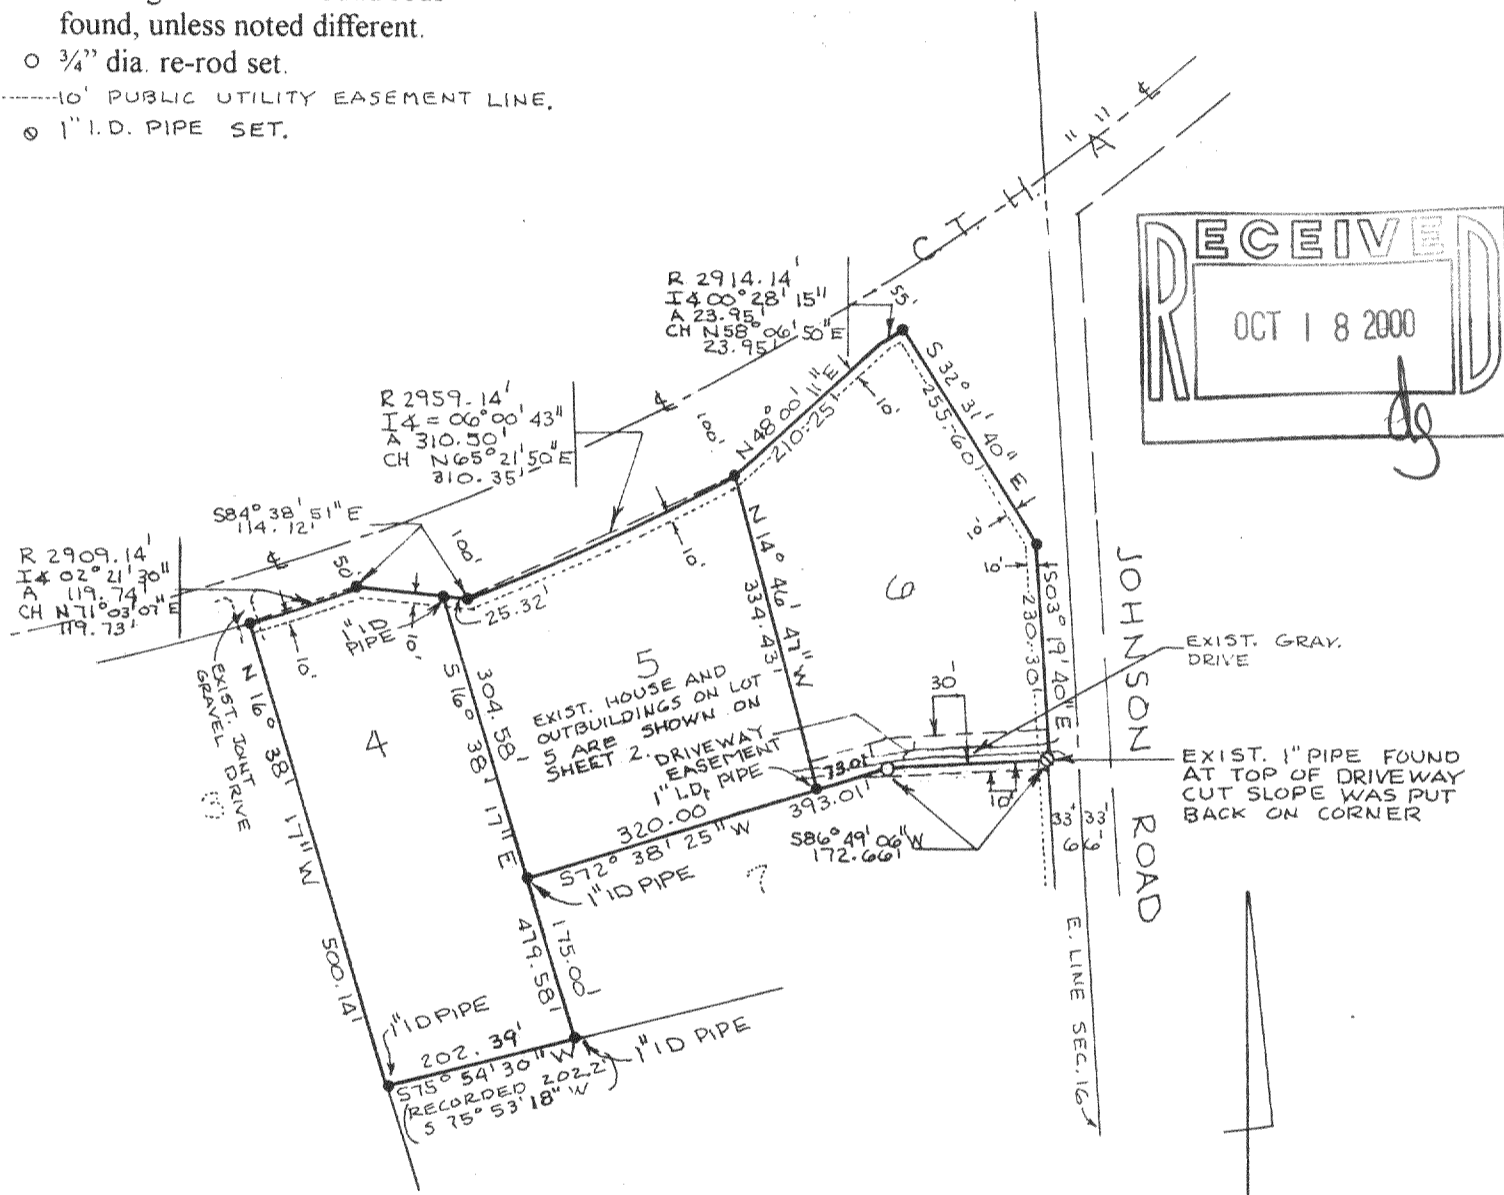 found, unless noted different.
○ ¾” dia. re-rod set.
10' PUBLIC UTILITY EASEMENT LINE.
1" I.D. PIPE SET.
C.T.H. "A"
RECEIVED
OCT 18 2000
R 2914.14'
I∡ 00° 28' 15"
A 23.95'
CH N58° 06' 50" E
23.95'
55'
R 2959.14'
I∡ = 06° 00' 43"
A 310.50'
CH N65° 21' 50" E
310.35'
100'
N 48° 00' 11" E
210.25'
10'
S 32° 31' 40" E
255.60'
10'
10'
S84° 38' 51" E
114.12'
R 2909.14'
I∡ 02° 21' 30"
A 119.74'
CH N71° 03' 07" E
119.73'
50'
100'
25.32'
1" ID
PIPE
10'
10'
10'
EXIST. JOINT
GRAVEL DRIVE
N 16° 38' 17" W
500.14'
4
304.58'
S 16° 38' 17" E
5
EXIST. HOUSE AND
OUTBUILDINGS ON LOT
5 ARE SHOWN ON
SHEET 2.
N 14° 46' 47" W
334.43'
6
S03° 19' 40" E
230.30'
JOHNSON ROAD
EXIST. GRAV.
DRIVE
30'
DRIVEWAY
EASEMENT
1" I.D. PIPE
73.01'
393.01'
10'
EXIST. 1" PIPE FOUND
AT TOP OF DRIVEWAY
CUT SLOPE WAS PUT
BACK ON CORNER
320.00
S72° 38' 25" W
S86° 49' 06" W
172.66'
33' 33'
1" ID PIPE
?
479.58'
175.00'
E. LINE SEC. 16
1" ID PIPE
202.39'
S75° 54' 30" W
(RECORDED 202.2'
S 75° 53' 18" W)
1" ID PIPE